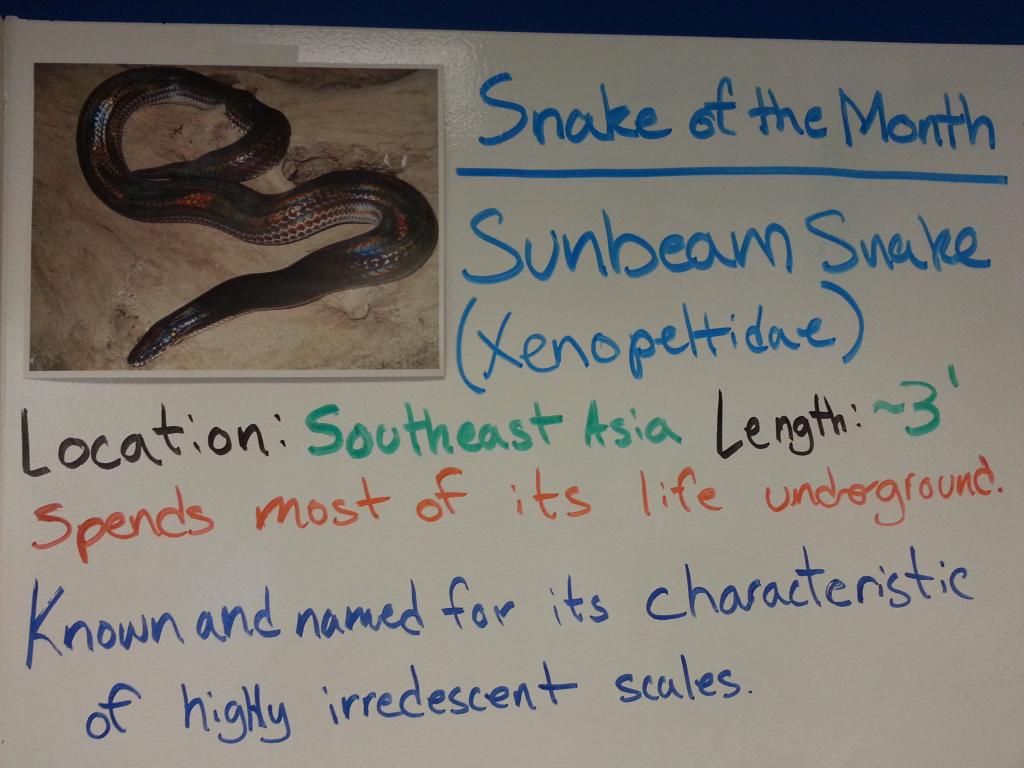 Snake of the Month
Sunbeam Snake
(Xenopeltidae)
Location: Southeast Asia Length: ~3'
Spends most of its life underground.
Known and named for its characteristic
of highly irredescent scales.